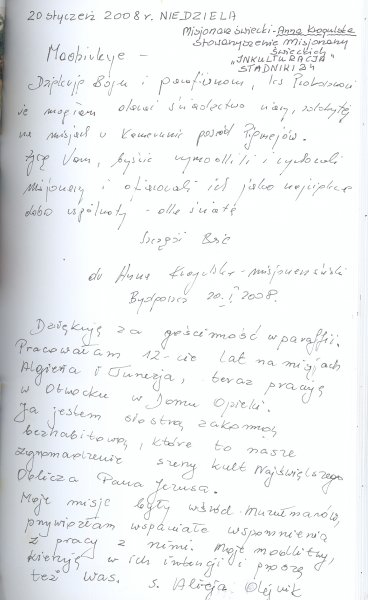 20 styczeń 2008 r. NIEDZIELA
Misjonarz świecki - Anna Krogulska
Stowarzyszenie Misjonarzy
świeckich
"INKULTURACJA"
STADNIKI 24
Dziękuję Bogu i parafianom, i ks. Proboszczowi
że mogłam dawać świadectwo wiary, zdobytej
na misjach w Kamerunie pośród Pigmejów.
życzę Wam, byście wymodlili i wychowali
misjonarzy i ofiarowali ich jako najcięższe
dobro wspólnoty - dla świata
Szczęść Boże
Anna Krogulska - misjonarz świecki
20.I.2008.
Dziękuję za gościnność w parafii.
Pracowałam 12-cie lat na misjach
Algieria i Tunezja, teraz pracuję
w Otwocku w Domu Opieki.
Ja jestem siostrą zakonną
bezhabitową, które to nasze
zgromadzenie szerzy kult Najświętszego
Oblicza Pana Jezusa.
Moje misje były wśród muzułmanów,
przywiozłam wspaniałe wspomnienia
z pracy z nimi. Moje modlitwy,
kieruję w ich intencji i proszę
też was. s. Alicja Olejnik